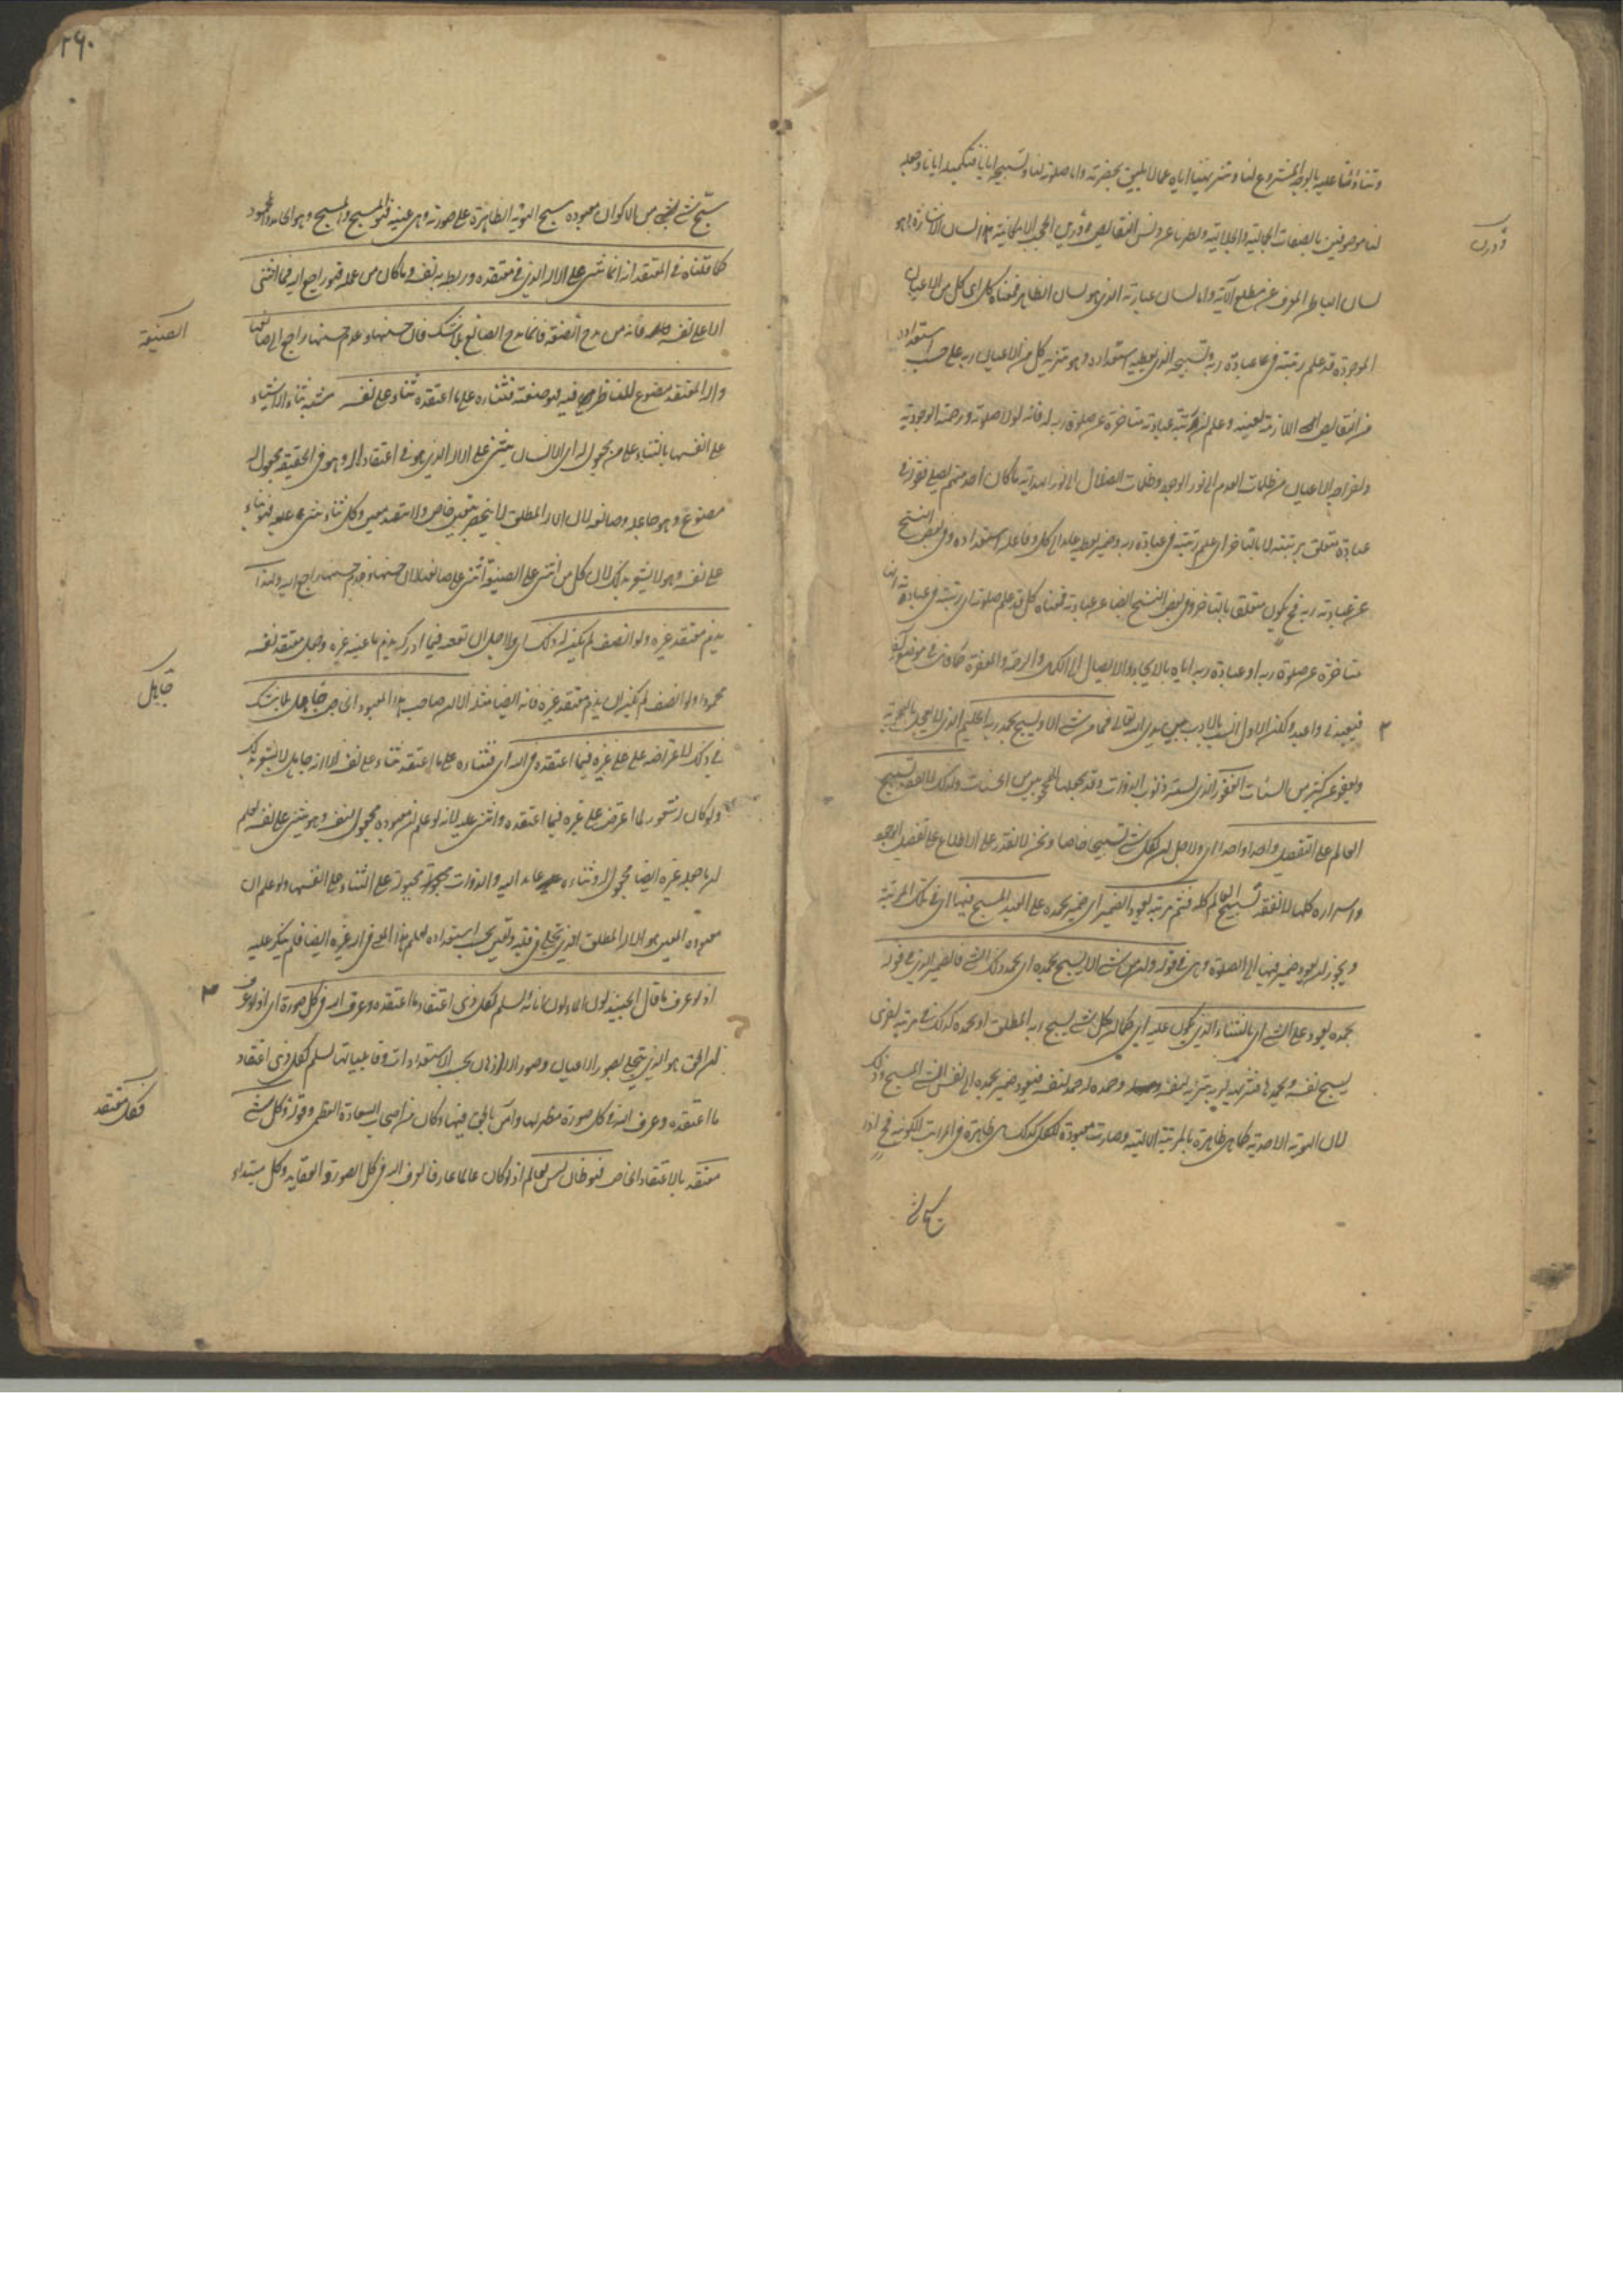 وثناؤنا عليه بالوجه المشروع لنا وتنزيهنا اياه عما لا يليق بحضرته واما صلوته لنا وتسبيحه ايانا فتكميله ايانا وجعله
لنا موصوفين بالصفات الجمالية والجلالية وتطهيرنا عن دنس النقايص ودرن الحجب الامكانية هذا لسان الاشارة وهو
درن
لسان الباطن المعرف عن مطلع الآية واما لسان عبارته الذي هو لسان الظاهر فمعناه كل اى كل من الاعيان
الموجودة قد علم رتبته فى عبادة ربه وتسبيحه الذي يعطيه استعداده وهو تنزيه كل من الاعيان ربه على حسب استعداده
من النقايص اللازمة لعينه وعلم ان رتبة عبادته متاخرة عن صلوة ربه له فانه لولا صلوته ورحمته الوجودية
واخراجه الاعيان من ظلمات العدم الى نور الوجود وظلمات الضلال الى نور الهداية ما كان احد منهم يصلى فقوله فى
عبادته متعلق برتبته لا بالتاخر اى علم رتبته فى عبادة ربه وضمير يعطيه عايد الى كل وفاعله استعداده وفى بعض النسخ
عن عبادته ربه فح يكون متعلق بالتاخر وفى بعض النسخ ايضا عن عبادته فمعناه كل قد علم صلوته اى رتبته فى عبادة ربه انها
متاخرة عن صلوة ربه او عبادة ربه اياه بالايجاد والايصال الى الكمال والرحمة والمغفرة كما قال فى موضع آخر
فيعبدنى واعبده ولكن الاول انسب بالادب بين يدى الله تعالى فما من شئ الا ويسبح بحمد ربه الحليم الذى لا يعجل بالعقوبة
ويعفو عن كثير من السيئات الغفور الذى يستر ذنوب الذوات وقد يجعلها للمحبوبين من الحسنات ولذلك لا نفقه تسبيح
العالم على التفصيل واحدا واحدا اى ولاجل ان لكل شئ تسبيحا خاصا ونحن لا نقدر على الاطلاع على تفصيل الوجود
واسراره كلها لا نفقه تسبيح العالم كله فثم مرتبة يعود الضمير اى ضمير بحمده على العبد المسبح فيها اى فى تلك المرتبة
ويجوز ان يعود ضمير فيها الى الصلوة وهى فى قوله وان من شئ الا يسبح بحمده اى بحمد ذلك الشئ فالضمير الذى فى قوله
بحمده يعود على الشئ اى بالثناء الذى يكون عليه اى كما ان كل شئ يسبح ربه المطلق او بحمده كذلك فى مرتبة اخرى
يسبح نفسه ويحمدها فتنزيهه لربه تنزيه لنفسه وحمده له حمد لنفسه فيعود ضمير بحمده الى نفس الشئ المسبح وذلك
لان الهوية الاحدية كما هى ظاهرة بالمرتبة الالهية وصارت معبودة للكل كذلك هى ظاهرة فى المراتب الكونية فح اذا
سبح شئ
٢٩٠
سبح شئ من الاكوان معبوده يسبح الهوية الظاهرة على صورته وهى عينه فهو المسبح والمسبح وهو الحامد والمحمود
كما قلناه فى المعتقد انه انما يثنى على الاله الذى فى معتقده وربط به نفسه وما كان من عمله فهو راجع اليه فما اثنى
الا على نفسه فانه من مدح الصنعة فانما مدح الصانع بلا شك فان حسنها وعدم حسنها راجع الى صانعها
الصنيعة
واله المعتقد مصنوع للناظر فيه فهو صنعته فثناؤه على ما اعتقده ثناء على نفسه شبه ثناء الاشياء
على انفسها بالثناء على من مجعول له اى الانسان يثنى على الاله الذى هو فى اعتقاده اله وهو فى الحقيقة مجعول له
مصنوع وهو جاعله وصانعه لان الاله المطلق لا ينحصر بتعين خاص ولا بعقد معين وكل ثناء يثنى به عليه فهو ثناء
على نفسه وهو لا يشعر بذلك لان كل من اثنى على الصنعة اثنى على صانعها لان حسنها وعدم حسنها راجع اليه ولهذا
يذم معتقد غيره ولو انصف لم يكن له ذلك اى لاجل ان تعقله فيما ادركه يذم ما عينه غيره وجعل معتقد نفسه
محمودا ولو انصف لم يكن له ان يذم معتقد غيره فانه ايضا مثله الا ان صاحب هذا المعبود الخاص جاهل بلا شك
جاهل
فى ذلك لاعتراضه على غيره فيما اعتقده فى الله اى فثناؤه على ما اعتقده ثناء على نفسه الا انه جاهل لا يشعر بذلك
ولو كان له شعور لما اعترض على غيره فيما اعتقده واثنى عليه لانه لو علم ان معبوده مجعول لنفسه وهو يثنى على نفسه لعلم
ان ما جعله غيره ايضا مجعول له وثناءه عايد اليه والذوات مجبولة على الثناء على انفسها ولو علم ان
معبوده المعين هو الاله المطلق الذي تجلى فى قلبه وتعين بحسب استعداده لعلم هذا المعنى فى اله غيره ايضا فلم ينكر عليه
اذ لو عرف ما قال الجنيد لون الماء لون انائه لسلم لكل ذى اعتقاد ما اعتقده وعرف الله فى كل صورة اى اذ لو عرف
ان الحق هو الذى يتجلى بصور الاعيان وصور الاذهان بحسب الاستعدادات وقابلياتها لسلم لكل ذى اعتقاد
ما اعتقده وعرف الله فى كل صورة مظهر لها وآمن بالحق فيها وكان من اصحاب السعادة العظمى وقوله وكل شئ
فكل معتقد
معتقد بالاعتقاد الخاص فهو ظان ليس بعالم اذ لو كان عالما عارفا لعرف الله فى كل الصور والعقايد وكل مبتداء